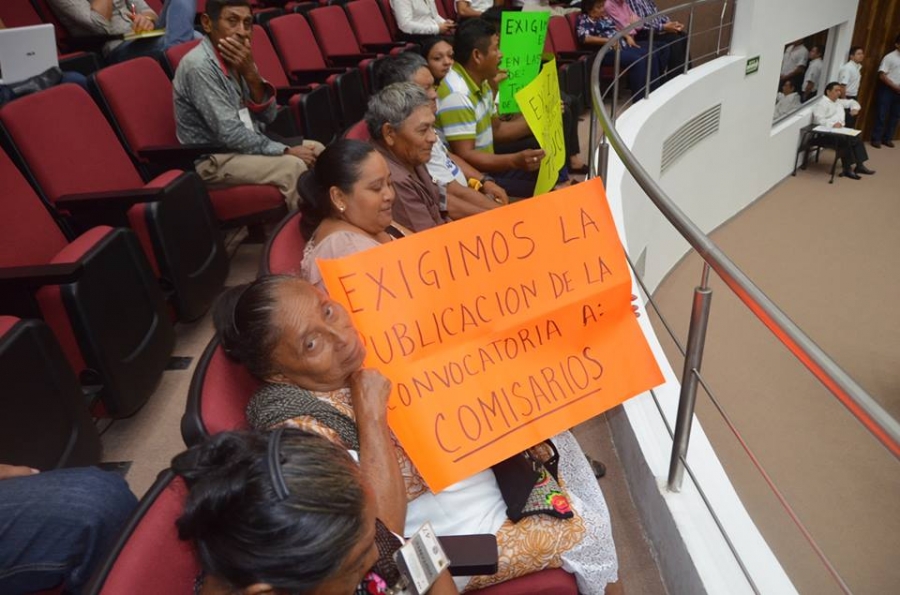 EXIGIMOS LA
PUBLICACION DE LA
CONVOCATORIA A:
COMISARIOS
EXIGI
EN
LAS
DE